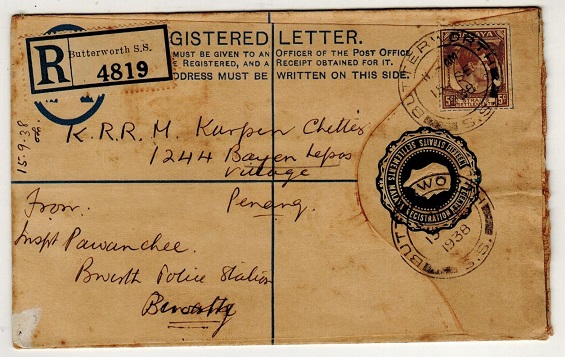 REGISTERED LETTER.
MUST BE GIVEN TO AN OFFICER OF THE POST OFFICE
BE REGISTERED, AND A RECEIPT OBTAINED FOR IT.
ADDRESS MUST BE WRITTEN ON THIS SIDE.
R
Butterworth S.S.
4819
MALAYA
5c
BUTTERWORTH S.S.
15.9.38
K.R.R.M. Karpen Chetties
1244 Bayen Lepas
Village
Penang.
STRAITS SETTLEMENTS MALAYA
REGISTRATION
BUTTERWORTH S.S.
1938
From.
Inspt Pawanchee.
Bworth Police Station